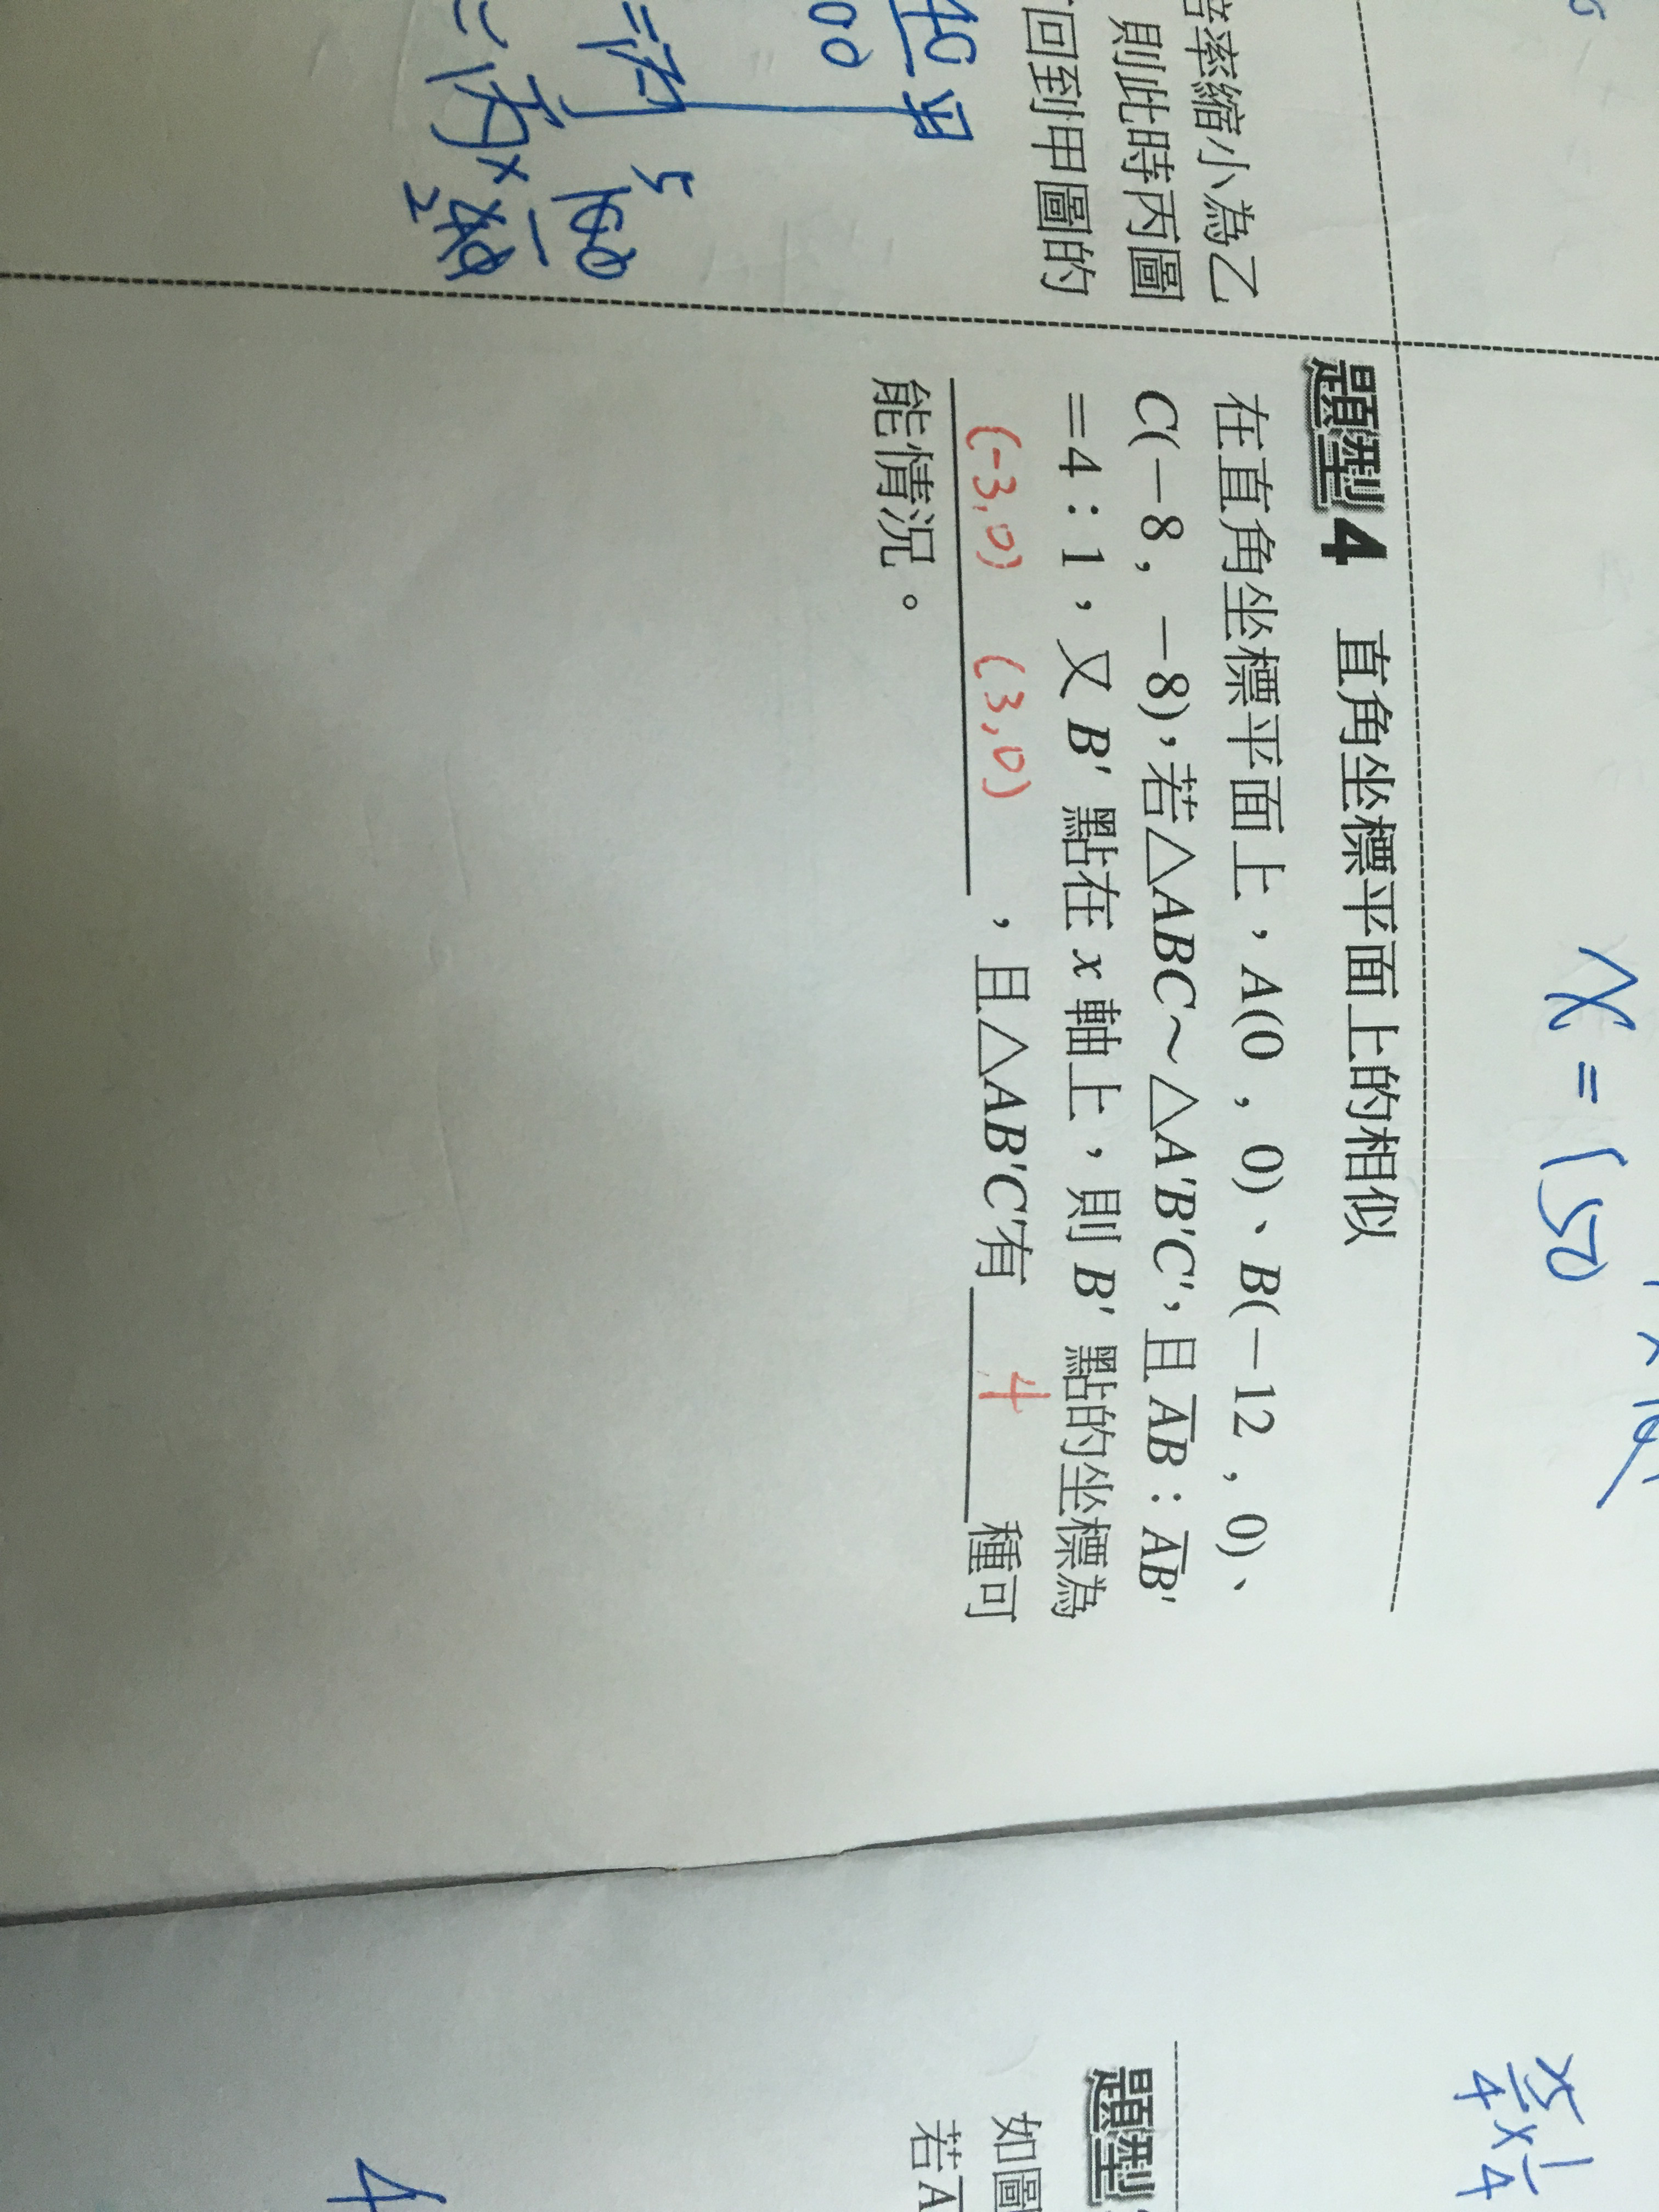 倍率縮小為乙
則此時丙圖
回到甲圖的
40
00
5
100
2
x = 150
題型4 直角坐標平面上的相似
在直角坐標平面上，A(0，0)、B(－12，0)、
C(－8，－8)，若△ABC～△A'B'C'，且AB：AB'
＝4：1，又B'點在x軸上，則B'點的坐標為
(-3,0) (3,0)，且△AB'C'有 4 種可
能情況。
題型
如圖
若A
4